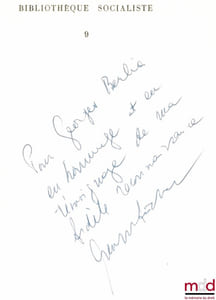 BIBLIOTHÈQUE SOCIALISTE
9
Pour Georges Berlia
en hommage et en
témoignage de ma
fidèle reconnaissance
mdd
la mémoire du droit